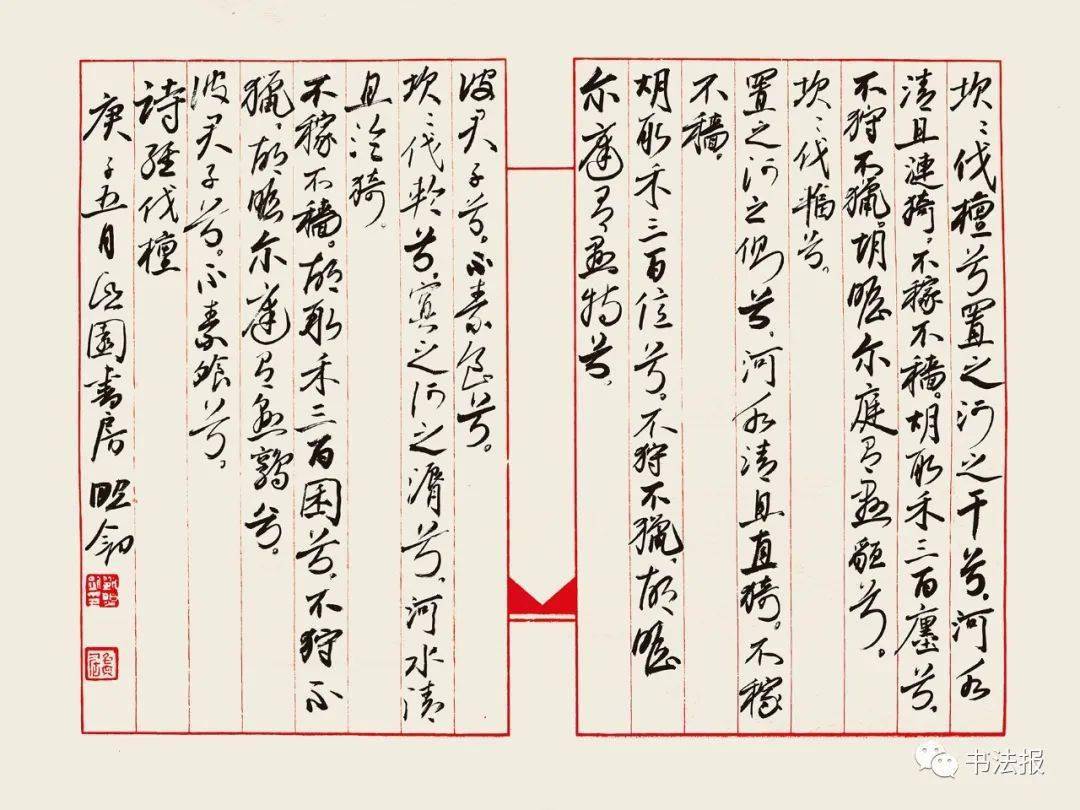 坎〻伐檀兮置之河之干兮,河水
清且漣猗,不稼不穡。胡取禾三百廛兮,
不狩不獵。胡瞻尔庭有县貆兮。
坎〻伐輻兮。
置之河之側兮,河水清且直猗。不稼
不穡,
胡取禾三百億兮。不狩不獵,胡瞻
尔庭有县特兮,
彼君子兮。不素食兮。
坎〻伐輪兮,寘之河之漘兮,河水清
且淪猗。
不稼不穡。胡取禾三百囷兮,不狩不
獵,胡瞻尔庭有县鶉兮。
彼君子兮。不素飧兮。
詩經伐檀
庚子五月 園書房 昭
书法报